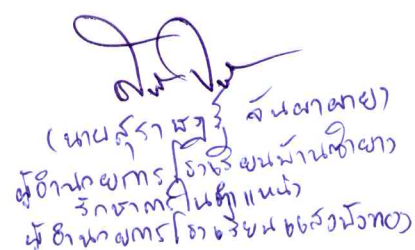 (นายสุราษฎร์ จันผาผาย)
ผู้อำนวยการโรงเรียนบ้านซำยาว
รักษาการในตำแหน่ง
ผู้อำนวยการโรงเรียน